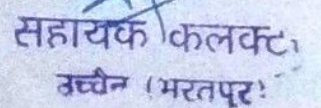 सहायक कलक्ट
उच्चैन (भरतपुर)